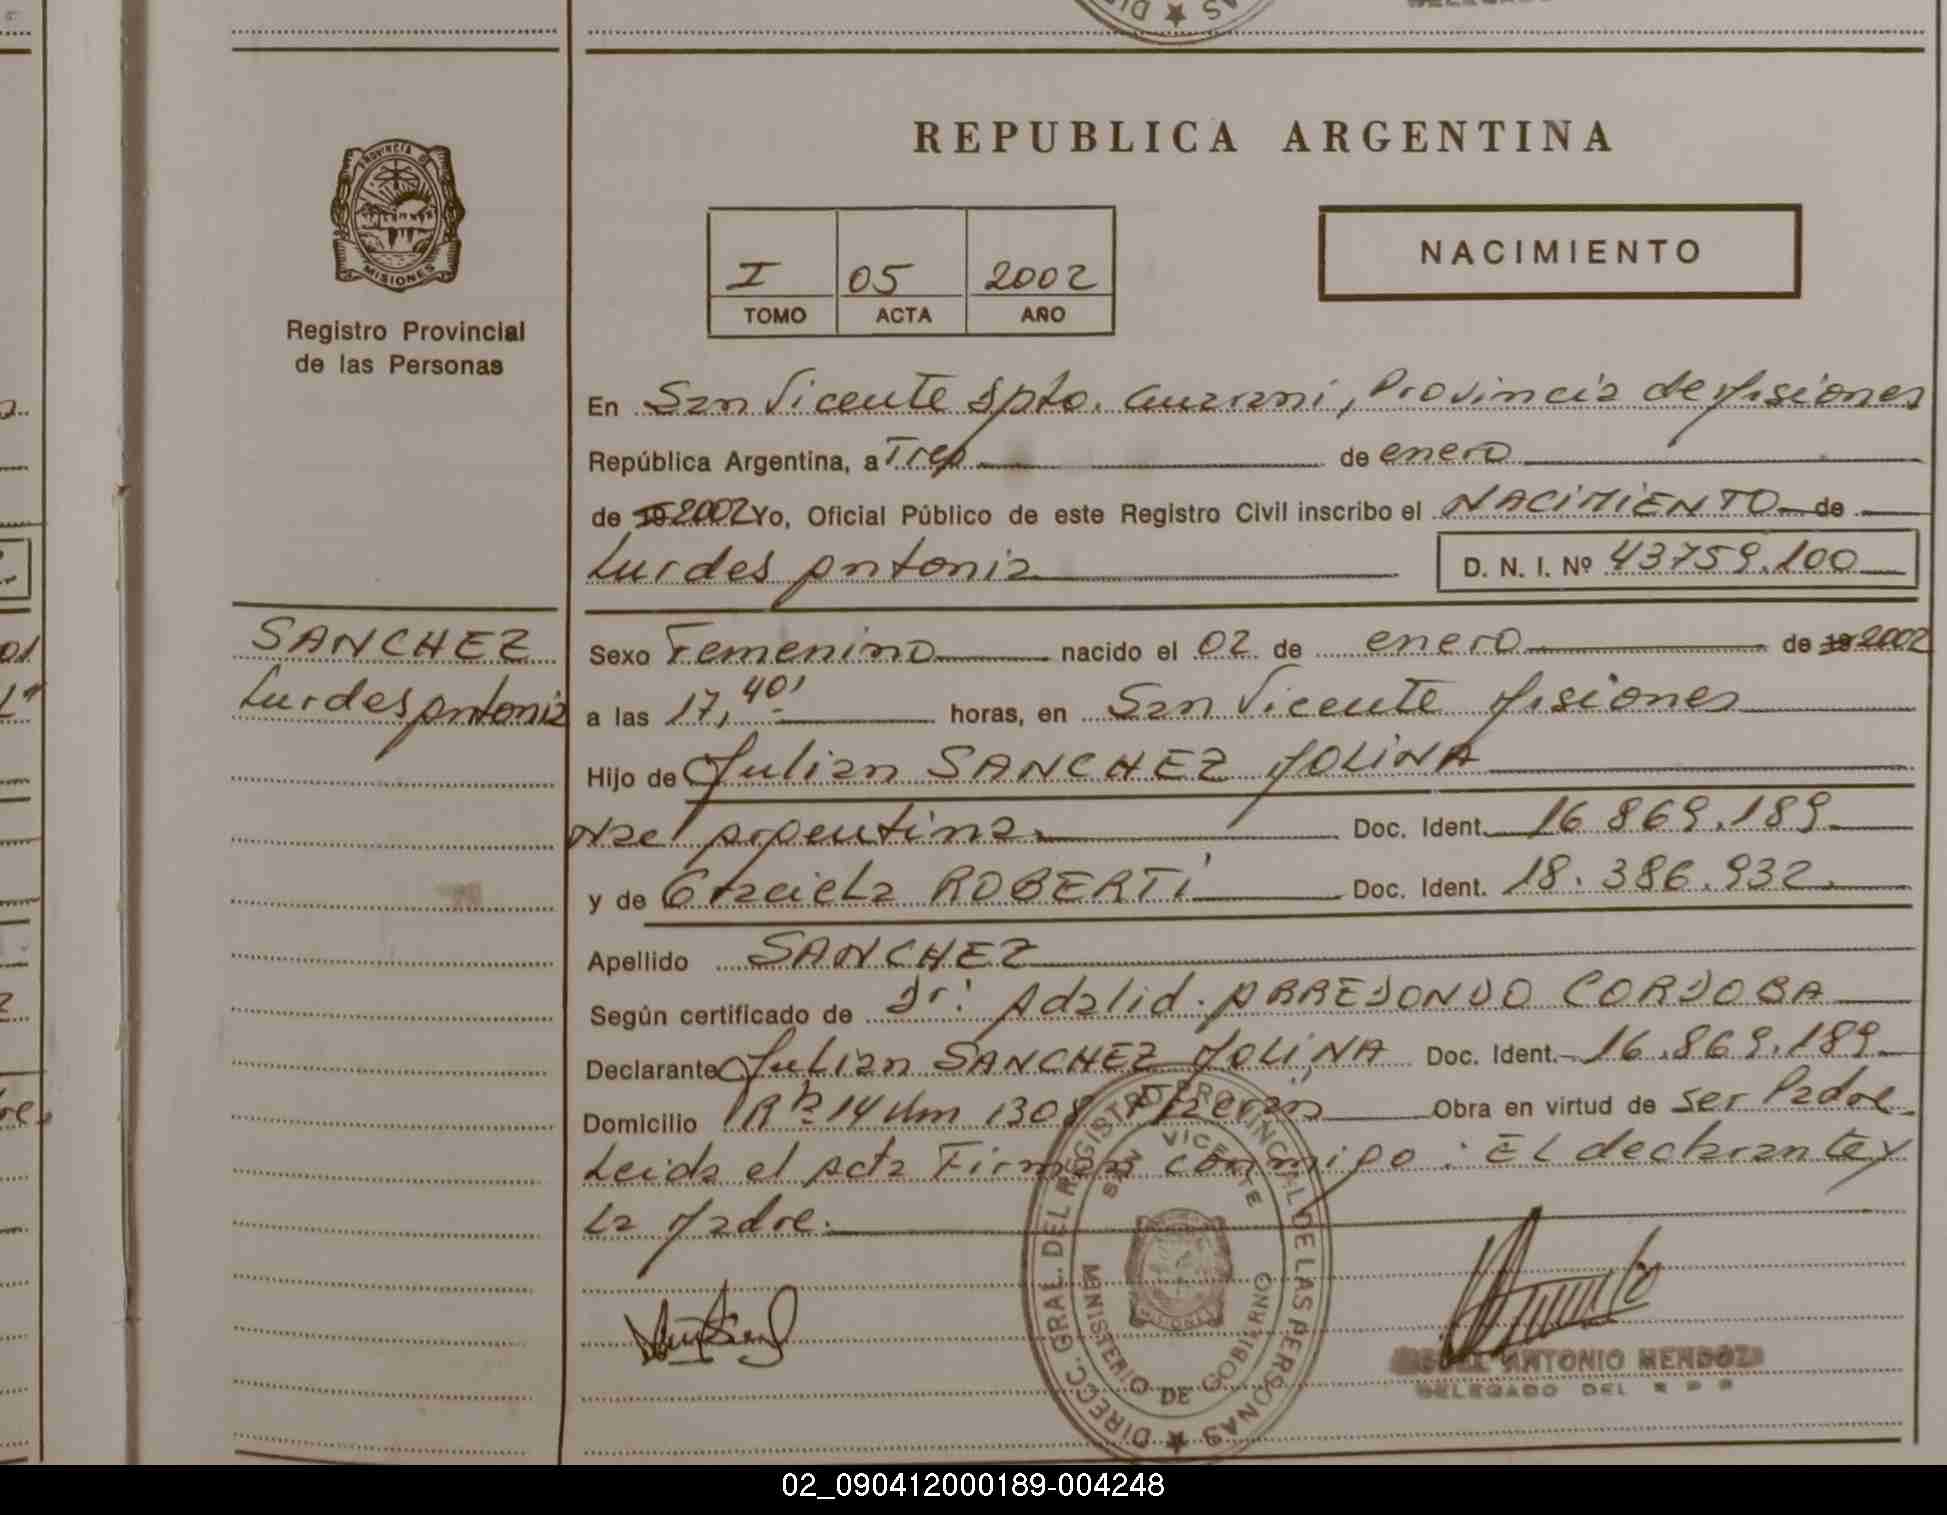 REPUBLICA ARGENTINA
PROVINCIA DE
MISIONES
Registro Provincial
de las Personas
I 05 2002
TOMO ACTA AÑO
NACIMIENTO
En San Vicente Dpto. Guarani, Provincia de Misiones
República Argentina, a Tres de enero
de 19 2002 Yo, Oficial Público de este Registro Civil inscribo el NACIMIENTO de
Lurdes Antonia D. N. I. Nº 43759.100
SANCHEZ
Lurdes Antonia
Sexo Femenino nacido el 02 de enero de 19 2002
a las 17,40' horas, en San Vicente Misiones
Hijo de Julian SANCHEZ MOLINA
Nac. Argentina Doc. Ident. 16.869.189
y de Graciela ROBERTI Doc. Ident. 18.386.932
Apellido SANCHEZ
Según certificado de Dr: Adalid ARREDONDO CORDOBA
Declarante Julian SANCHEZ MOLINA Doc. Ident. 16.869.189
Domicilio R Nº 14 Km 1308 Obra en virtud de ser Padre
Leida el Acta Firman conmigo: El declarante y
La Madre.
DIRECC. GRAL. DEL REGISTRO PROVINCIAL DE LAS PERSONAS
SAN VICENTE
MINISTERIO DE GOBIERNO
ANTONIO MENDOZA
DELEGADO DEL R P P
02_090412000189-004248